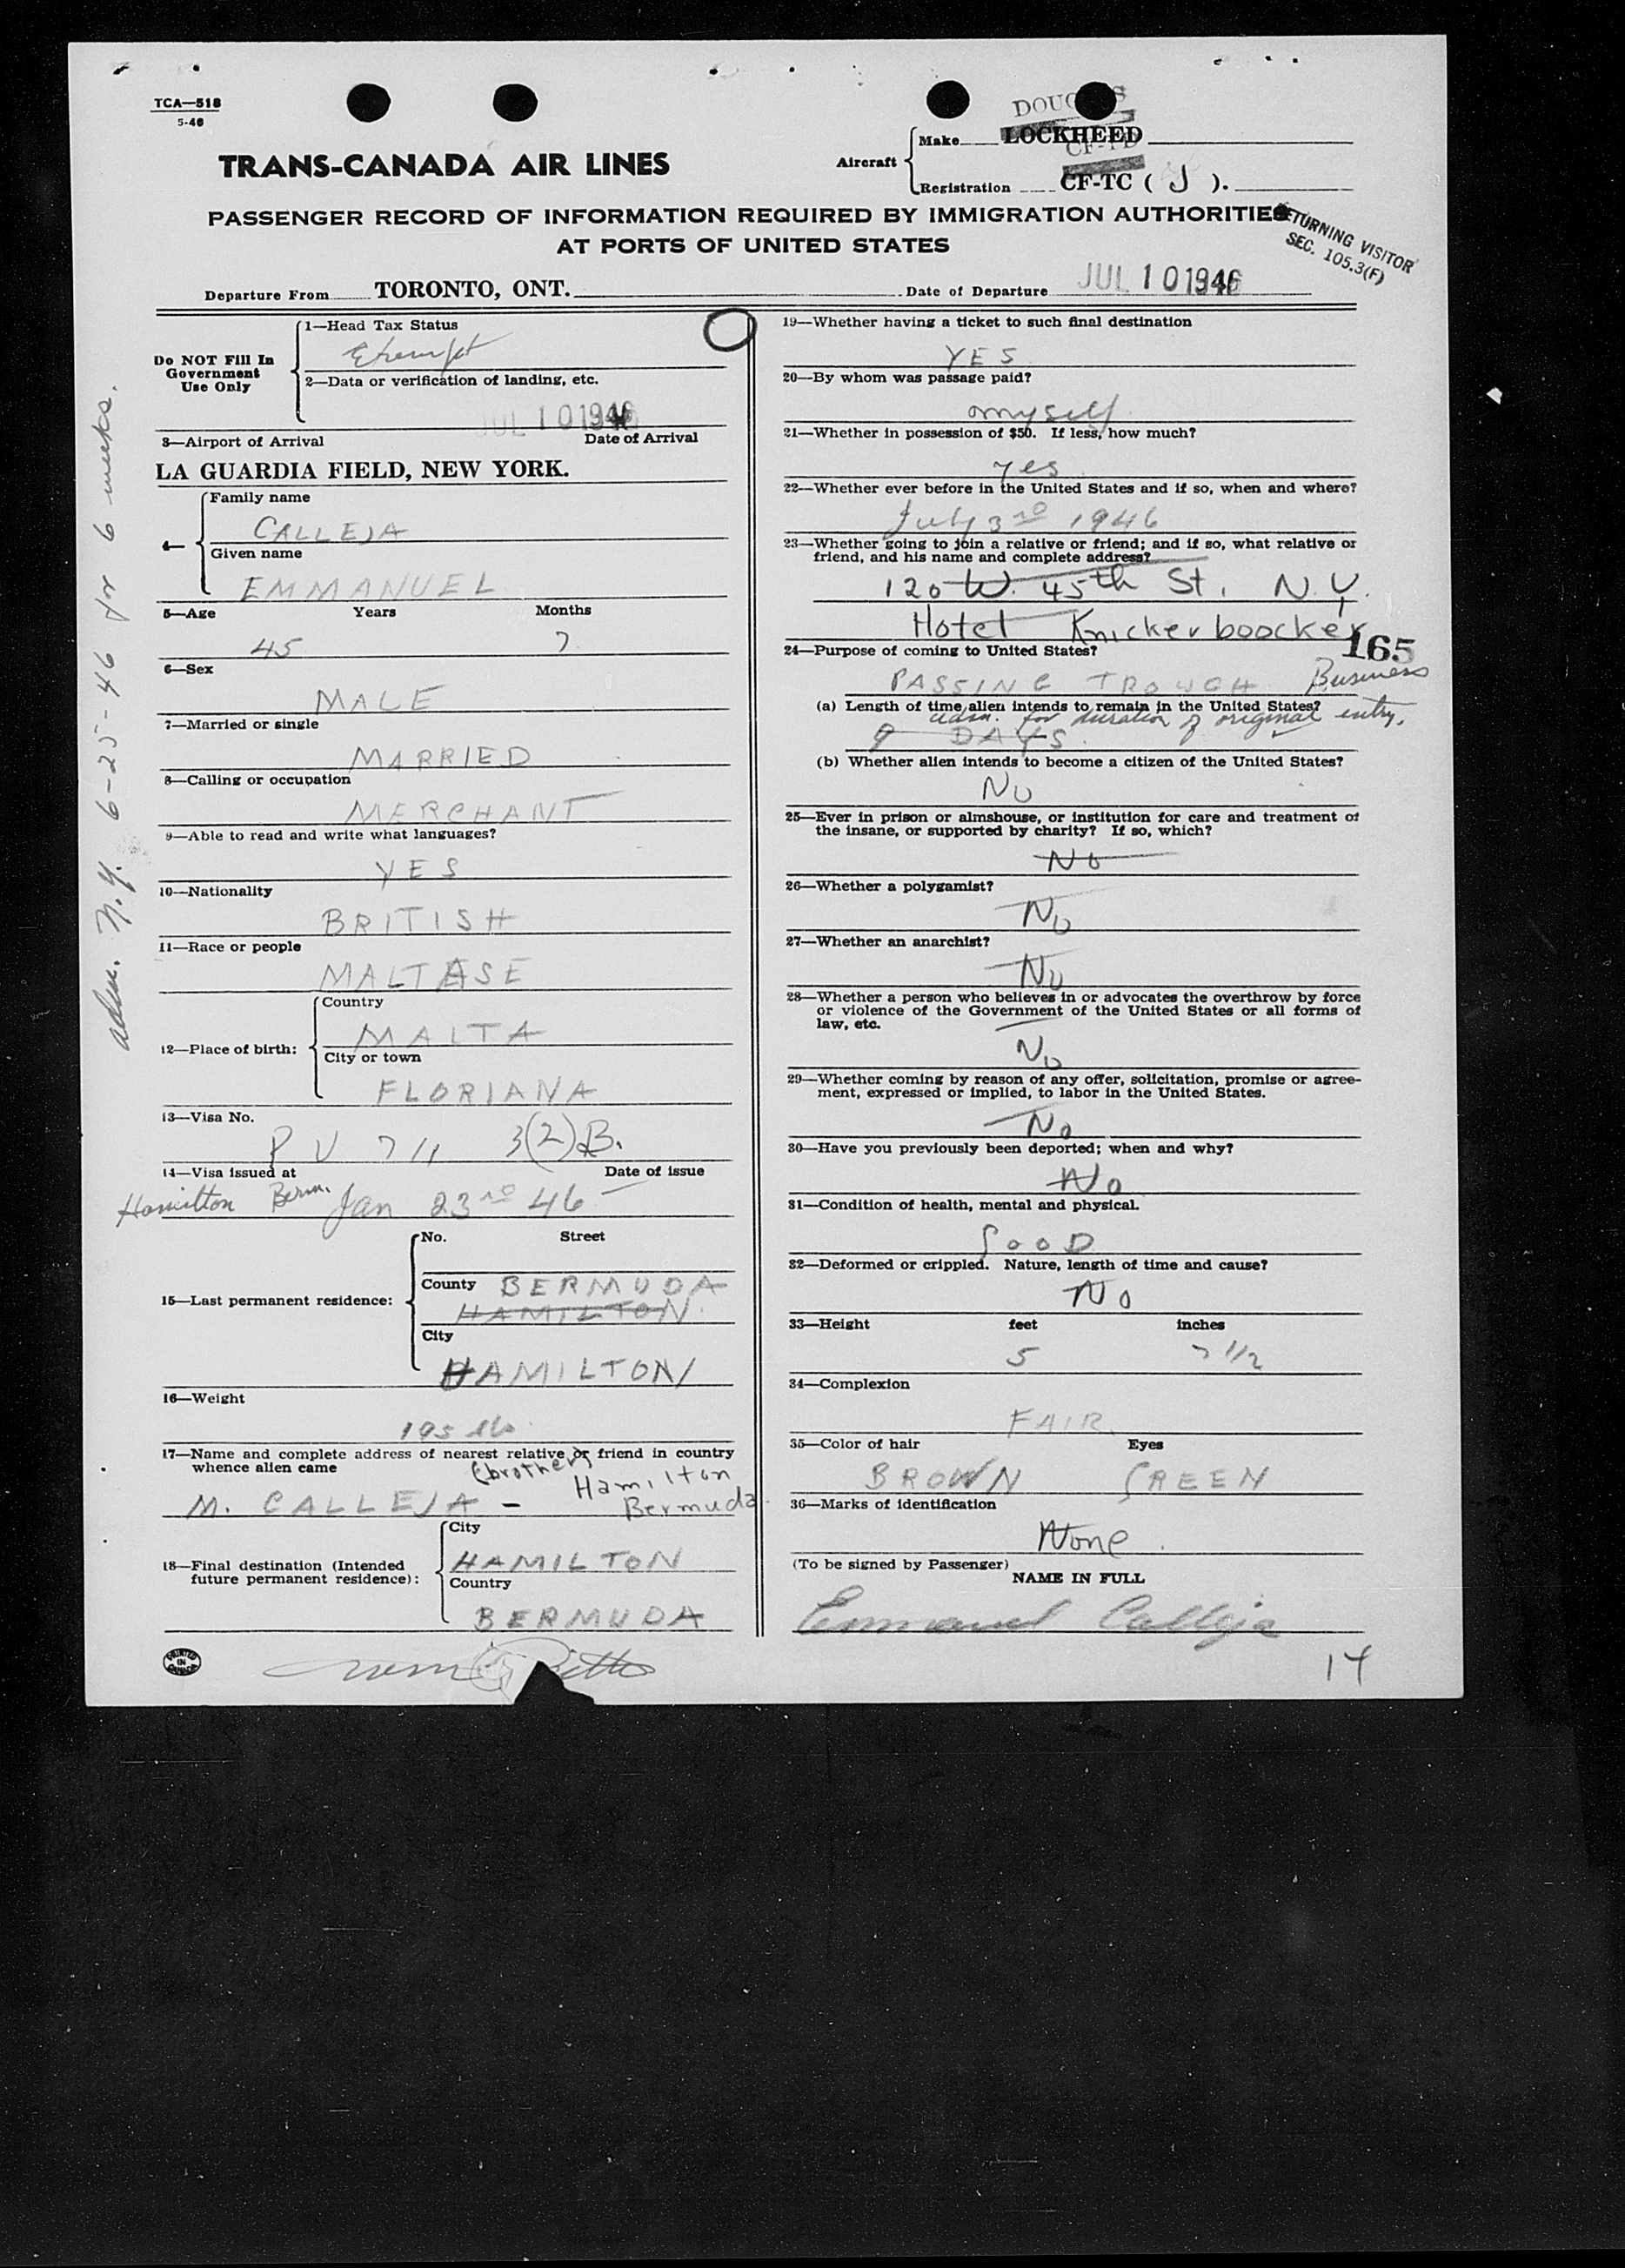 TCA—518
5-46
TRANS-CANADA AIR LINES
Aircraft
DOUGLAS
Make LOCKHEED
CF-TD
Registration CF-TC ( J ).
PASSENGER RECORD OF INFORMATION REQUIRED BY IMMIGRATION AUTHORITIES
AT PORTS OF UNITED STATES
RETURNING VISITOR
SEC. 105.3(F)
Departure From TORONTO, ONT. Date of Departure JUL 10 1946
adm. N.Y. 6-25-46 for 6 weeks.
Do NOT Fill In
Government
Use Only
1—Head Tax Status
Exempt
2—Data or verification of landing, etc.
JUL 10 1946
3—Airport of Arrival Date of Arrival
LA GUARDIA FIELD, NEW YORK.
4—
Family name
CALLEJA
Given name
EMMANUEL
5—Age Years Months
45 7
6—Sex
MALE
7—Married or single
MARRIED
8—Calling or occupation
MERCHANT
9—Able to read and write what languages?
YES
10—Nationality
BRITISH
11—Race or people
MALTASE
12—Place of birth:
Country
MALTA
City or town
FLORIANA
13—Visa No.
PV 711 3(2)B.
14—Visa issued at Date of issue
Hamilton Berm. Jan 23rd 46
15—Last permanent residence:
No. Street
County BERMUDA
HAMILTON
City
HAMILTON
16—Weight
195 lbs
17—Name and complete address of nearest relative or friend in country
whence alien came
(brother)
M. CALLEJA - Hamilton
Bermuda
18—Final destination (Intended
future permanent residence):
City
HAMILTON
Country
BERMUDA
PRINTED
IN
CANADA
19—Whether having a ticket to such final destination
YES
20—By whom was passage paid?
myself
21—Whether in possession of $50. If less, how much?
yes
22—Whether ever before in the United States and if so, when and where?
July 3rd 1946
23—Whether going to join a relative or friend; and if so, what relative or
friend, and his name and complete address?
120 W. 45th St, N.Y.
Hotel Knickerboocker
165
24—Purpose of coming to United States?
PASSING TROUGH Business
(a) Length of time alien intends to remain in the United States?
adm. for duration of original entry.
9 DAYS
(b) Whether alien intends to become a citizen of the United States?
No
25—Ever in prison or almshouse, or institution for care and treatment of
the insane, or supported by charity? If so, which?
No
26—Whether a polygamist?
No
27—Whether an anarchist?
No
28—Whether a person who believes in or advocates the overthrow by force
or violence of the Government of the United States or all forms of
law, etc.
No
29—Whether coming by reason of any offer, solicitation, promise or agree-
ment, expressed or implied, to labor in the United States.
No
30—Have you previously been deported; when and why?
No
31—Condition of health, mental and physical.
GOOD
32—Deformed or crippled. Nature, length of time and cause?
No
33—Height feet inches
5 7 1/2
34—Complexion
FAIR
35—Color of hair Eyes
BROWN GREEN
36—Marks of identification
None
(To be signed by Passenger)
NAME IN FULL
Emmanuel Calleja
14